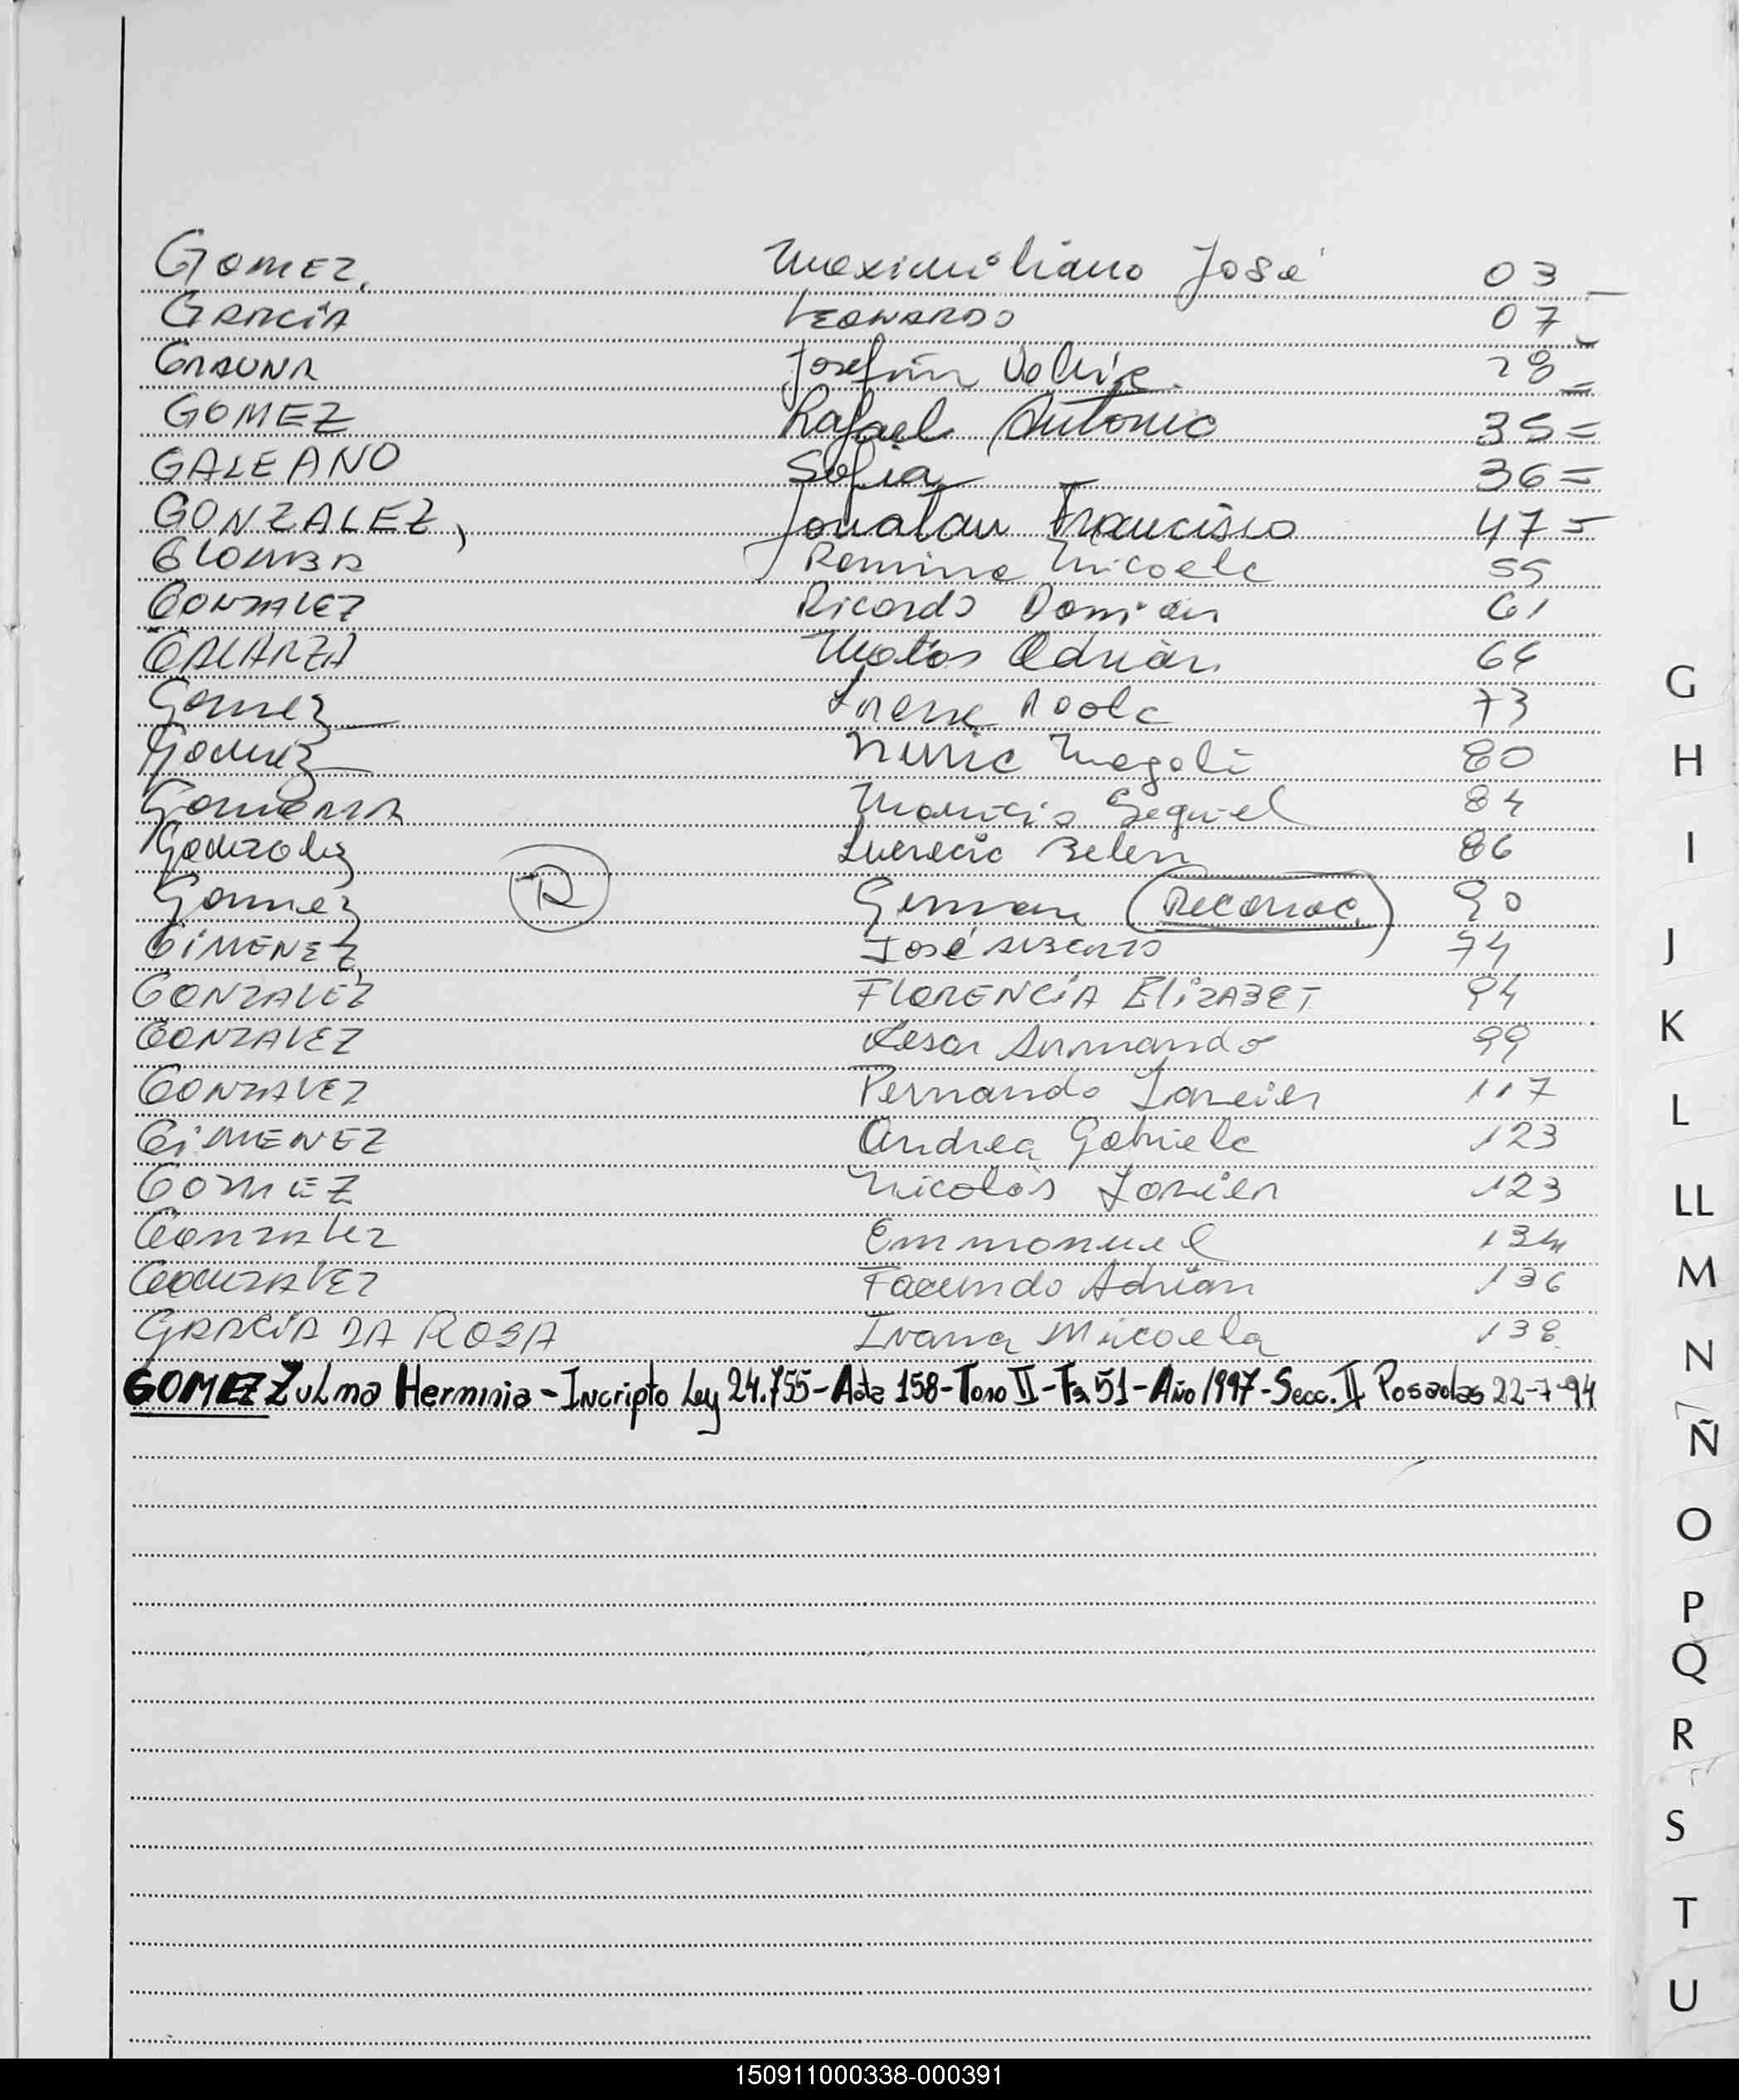 GOMEZ, Maximiliano José 03
GARCIA LEONARDO 07
GAUNA Josefina 28
GOMEZ Rafael Antonio 35
GALEANO Sofia 36
GONZALEZ, Jonatan Francisco 47
GLOMBA Romina Micaela 55
GONZALEZ Ricardo Damian 61
GALARZA Matias Adrián 64
Gomez Paola 73
Gomez Nuria Magali 80
Mauricio Sequiel 84
Gonzalez Lucrecia Belen 86
Gomez R German (Reconoc.) 90
GIMENEZ José ALBERTO 74
GONZALEZ FLORENCIA ELIZABET 94
GONZALEZ Cesar Armando 99
GONZALEZ Fernando Javier 117
GIMENEZ Andrea Gabriela 123
GOMEZ Nicolás Javier 123
GONZALEZ Emmanuel 134
GONZALEZ Facundo Adrian 136
GRACIA DA ROSA Ivana Micaela 138
GOMEZ Zulma Herminia - Incripto Ley 24.755 - Acta 158 - Tomo II - Fº 51 - Año 1997 - Secc. II Posadas 22-7-94
G
H
I
J
K
L
LL
M
N
Ñ
O
P
Q
R
S
T
U
150911000338-000391